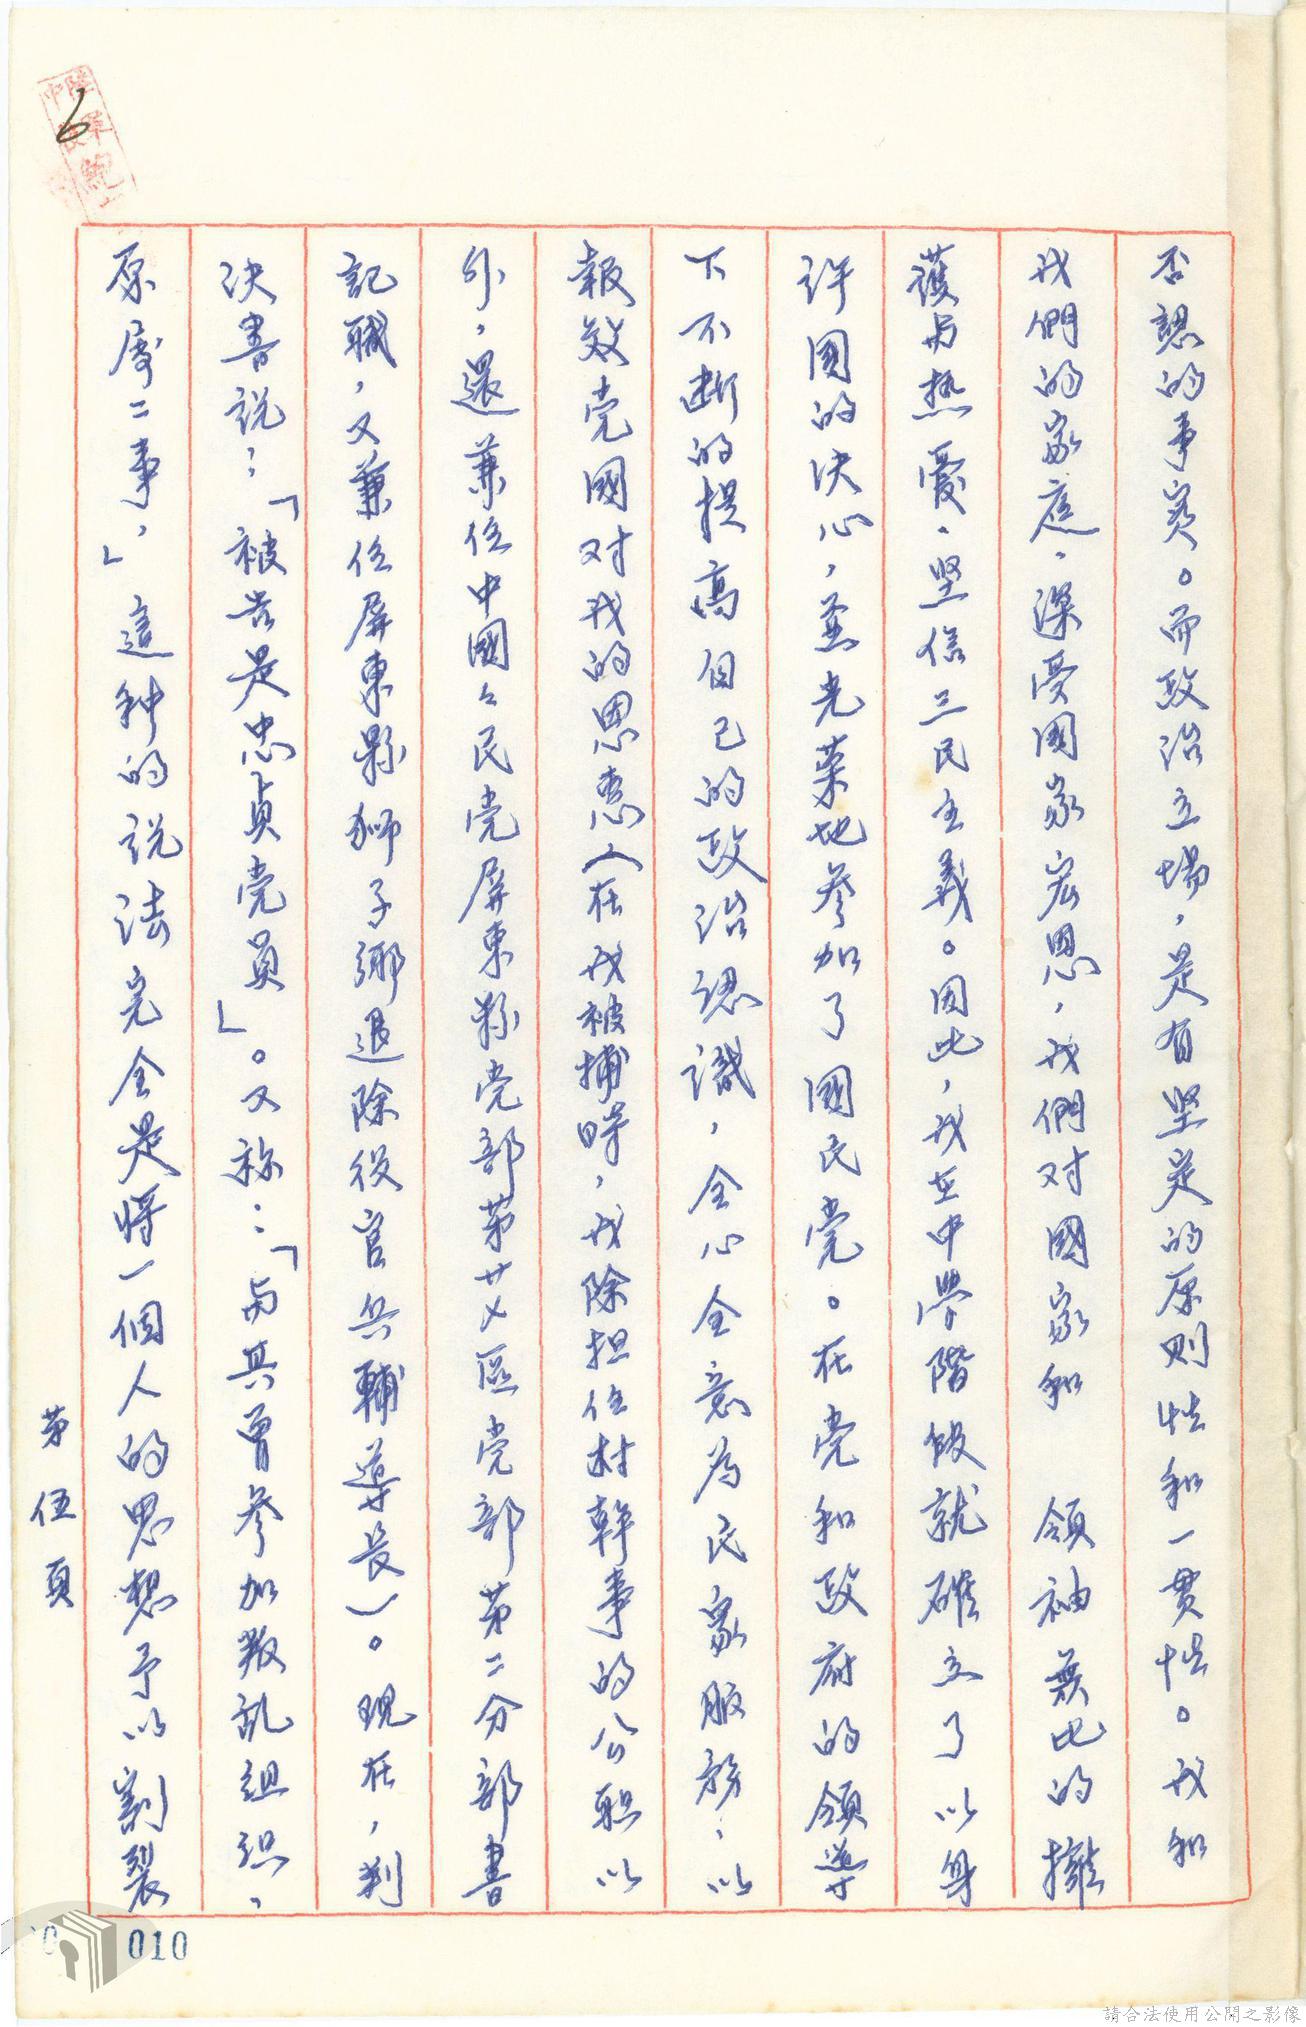 否認的事実。而政治立場，是有坚定的原則性和一貫性。我和
我們的家庭，深受国家宏恩，我們对國家和　領袖無比的擁
護与热愛，坚信三民主義。因此，我在中學階段就確立了以身
許國的决心，並光荣地參加了國民党。在党和政府的領導
下不断的提高自己的政治認識，全心全意為民衆服務，以
報效党國对我的恩惠（在我被捕時，我除担任村幹事的公职以
外，還兼任中國々民党屏東縣党部第廿乂區党部第二分部書
記職，又兼任屏東縣獅子鄉退除役官兵輔導長）。現在，判
决書説：「被告是忠貞党員」。又称：「与其曾參加叛乱組织，
原属二事，」這种的説法完全是將一個人的思想予以割裂
第伍頁
6
010
請合法使用公開之影像